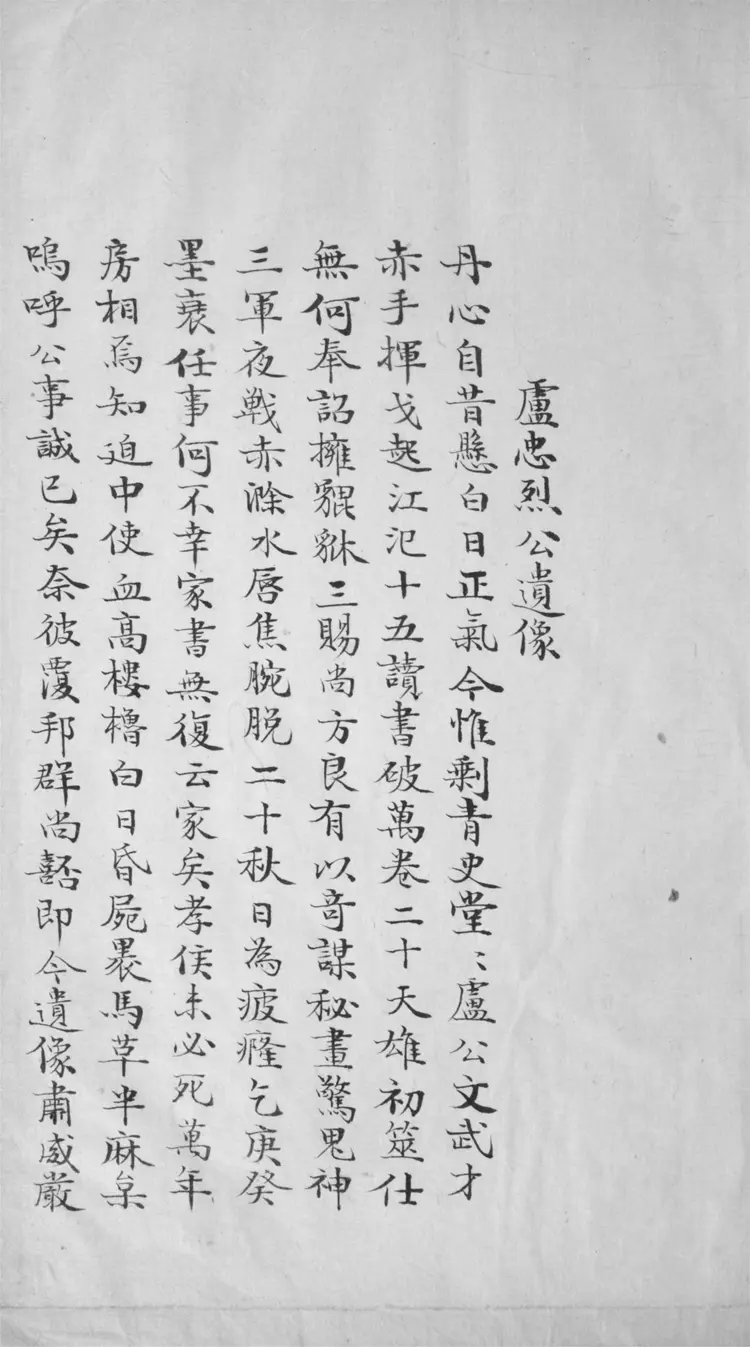 盧忠烈公遺像
丹心自昔懸白日正氣今惟剩青史堂〻盧公文武才
赤手揮戈起江汜十五讀書破萬卷二十天雄初筮仕
無何奉詔擁貔貅三賜尚方良有以奇謀秘畫驚鬼神
三軍夜戰赤滁水唇焦腕脫二十秋日為疲癃乞庚癸
墨衰任事何不幸家書無復云家矣孝侯未必死萬年
房相焉知迫中使血高樓櫓白日昏屍裹馬草半麻枲
嗚呼公事誠已矣奈彼覆邦群尚嚭即今遺像肅威嚴